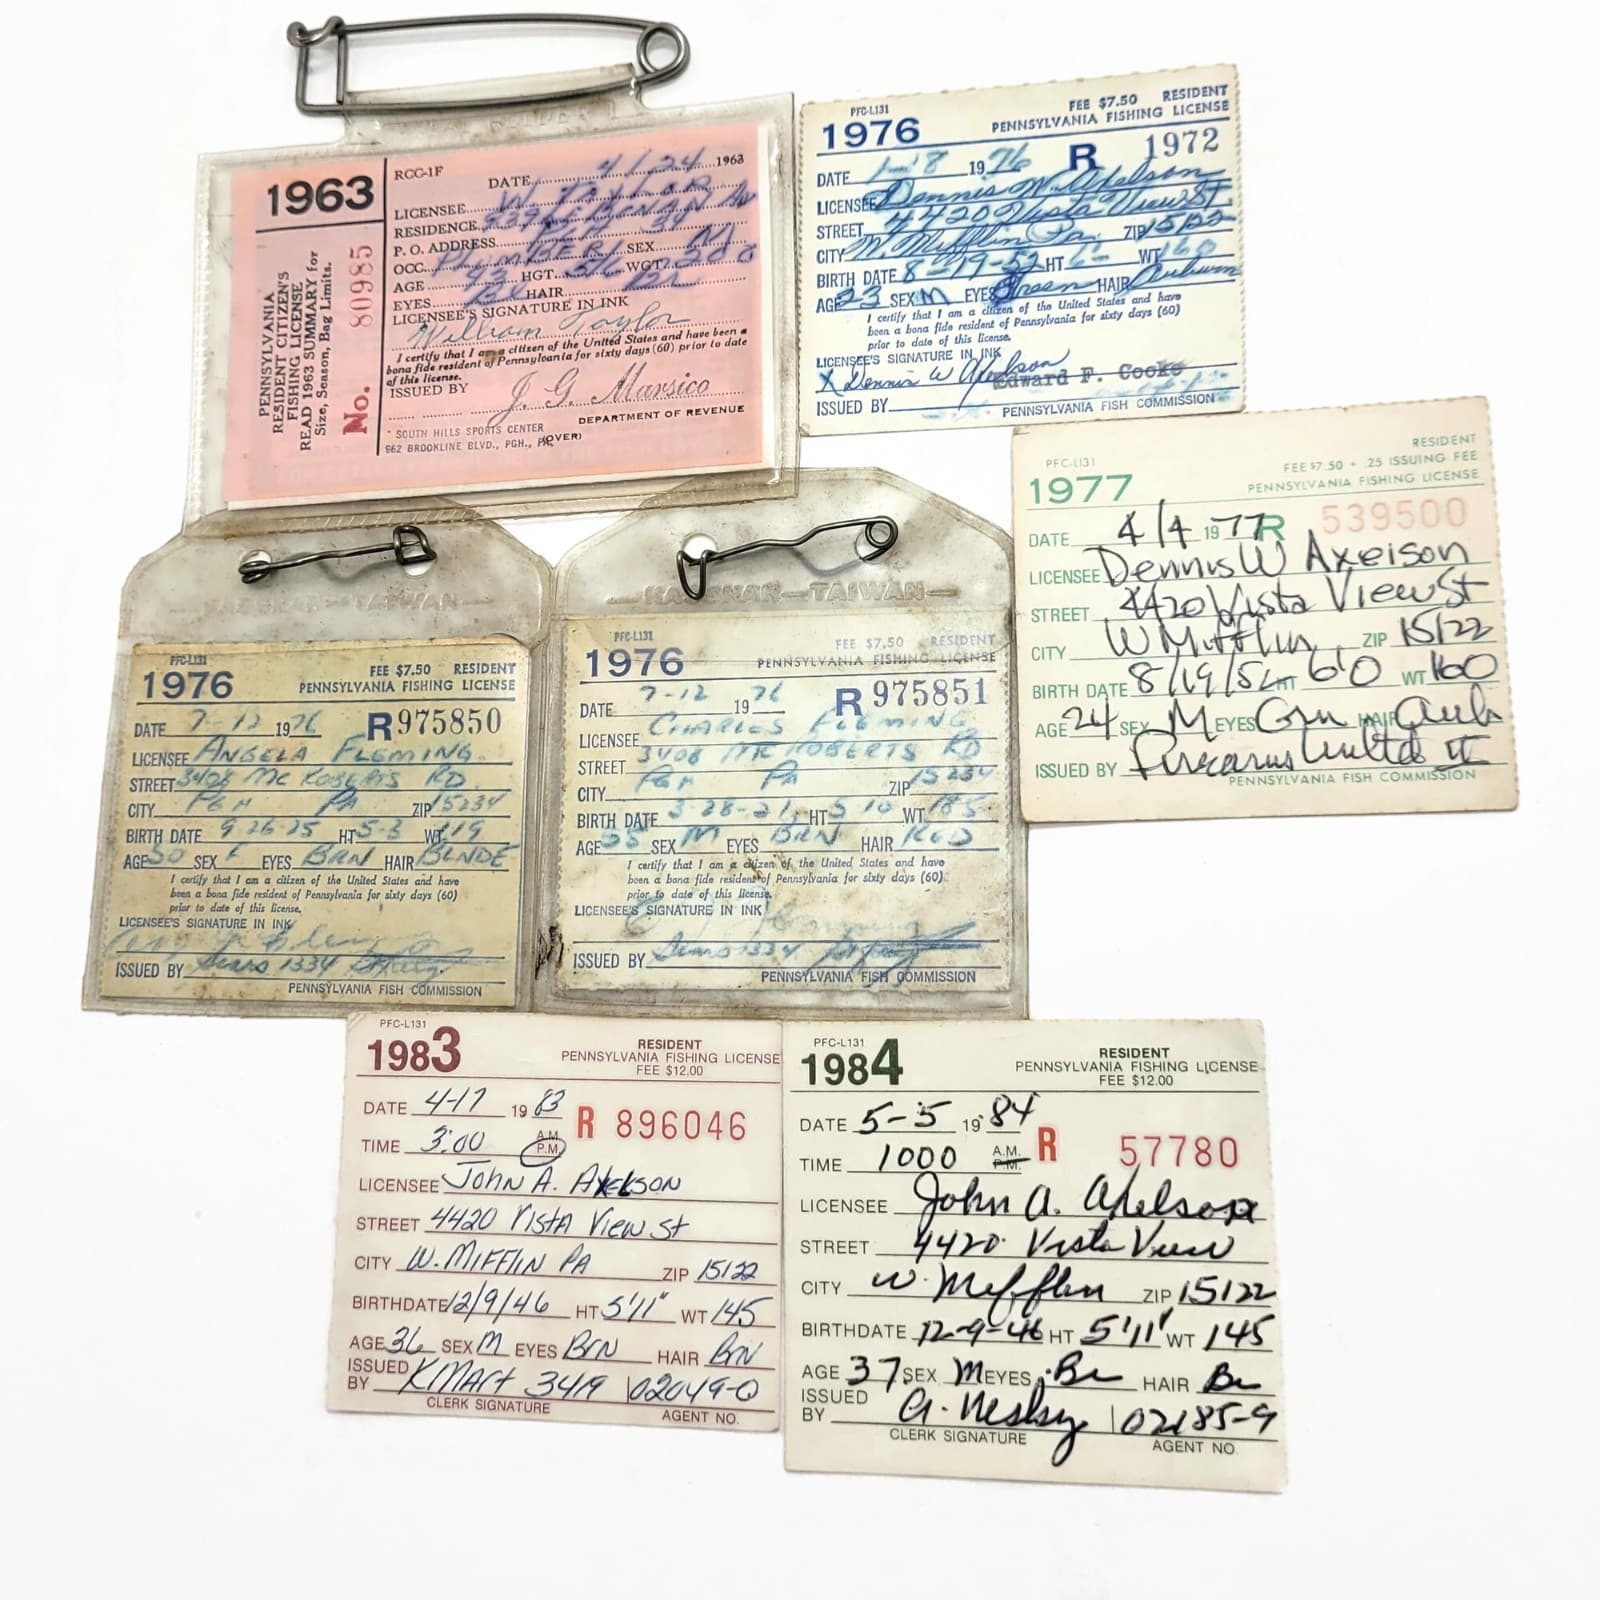 1963
PENNSYLVANIA
RESIDENT CITIZEN'S
FISHING LICENSE
READ 1963 SUMMARY for
Size, Season, Bag Limits.
No. 80985
RCC-1F
DATE 4/24 1963
LICENSEE W TAYLOR
RESIDENCE
P.O. ADDRESS PGH 34
OCC. PLUMBER SEX M
AGE HGT. 5/6 WGT. 200
EYES HAIR
LICENSEE'S SIGNATURE IN INK
William Taylor
I certify that I am a citizen of the United States and have been a
bona fide resident of Pennsylvania for sixty days (60) prior to date
of this license.
ISSUED BY J. G. Marsico
DEPARTMENT OF REVENUE
SOUTH HILLS SPORTS CENTER
962 BROOKLINE BLVD., PGH., PA.
(OVER)
PFC-L131
1976
FEE $7.50 RESIDENT
PENNSYLVANIA FISHING LICENSE
R 1972
DATE 1-8 1976
LICENSEE Dennis W. Axelson
STREET 4420 Vista View St
CITY W. Mifflin Pa. ZIP 15122
BIRTH DATE 8-19-52 HT 6- WT 160
AGE 23 SEX M EYES Green HAIR Auburn
I certify that I am a citizen of the United States and have
been a bona fide resident of Pennsylvania for sixty days (60)
prior to date of this license.
LICENSEE'S SIGNATURE IN INK
X Dennis W Axelson
Edward F. Cooke
ISSUED BY
PENNSYLVANIA FISH COMMISSION
PFC-L131
1977
RESIDENT
FEE $7.50 + .25 ISSUING FEE
PENNSYLVANIA FISHING LICENSE
DATE 4/4 1977 R 539500
LICENSEE Dennis W Axelson
STREET 4420 Vista View St
CITY W Mifflin ZIP 15122
BIRTH DATE 8/19/52 HT 6'0 WT 160
AGE 24 SEX M EYES Grn HAIR Aub
ISSUED BY Firearms Unlted II
PENNSYLVANIA FISH COMMISSION
TAIWAN
PFC-L131
1976
FEE $7.50 RESIDENT
PENNSYLVANIA FISHING LICENSE
DATE 7-12 1976 R 975850
LICENSEE ANGELA FLEMING
STREET 3408 MC ROBERTS RD.
CITY PGH PA ZIP 15234
BIRTH DATE 9 26-25 HT 5-3 WT 119
AGE 50 SEX F EYES BRN HAIR BLNDE
I certify that I am a citizen of the United States and have
been a bona fide resident of Pennsylvania for sixty days (60)
prior to date of this license.
LICENSEE'S SIGNATURE IN INK
ISSUED BY Sears 1334
PENNSYLVANIA FISH COMMISSION
TAIWAN
PFC-L131
1976
FEE $7.50 RESIDENT
PENNSYLVANIA FISHING LICENSE
DATE 7-12 1976 R 975851
LICENSEE CHARLES FLEMING
STREET 3408 MC ROBERTS RD
CITY PGH PA ZIP 15234
BIRTH DATE 3-28-21 HT 5 10 WT 185
AGE 55 SEX M EYES BRN HAIR RED
I certify that I am a citizen of the United States and have
been a bona fide resident of Pennsylvania for sixty days (60)
prior to date of this license.
LICENSEE'S SIGNATURE IN INK
ISSUED BY Sears 1334
PENNSYLVANIA FISH COMMISSION
PFC-L131
1983
RESIDENT
PENNSYLVANIA FISHING LICENSE
FEE $12.00
DATE 4-17 1983 R 896046
TIME 3:00 A.M. P.M.
LICENSEE JOHN A. AXELSON
STREET 4420 VISTA VIEW St
CITY W. MIFFLIN PA ZIP 15122
BIRTHDATE 12/9/46 HT 5'11" WT 145
AGE 36 SEX M EYES BRN HAIR BRN
ISSUED BY KMART 3419 02049-0
CLERK SIGNATURE AGENT NO.
PFC-L131
1984
RESIDENT
PENNSYLVANIA FISHING LICENSE
FEE $12.00
DATE 5-5 1984 R 57780
TIME 1000 A.M. P.M.
LICENSEE John A. Axelson
STREET 4420 Vista View
CITY W. Mifflin ZIP 15122
BIRTHDATE 12-9-46 HT 5'11" WT 145
AGE 37 SEX M EYES Br HAIR Br
ISSUED BY 02185-9
CLERK SIGNATURE AGENT NO.